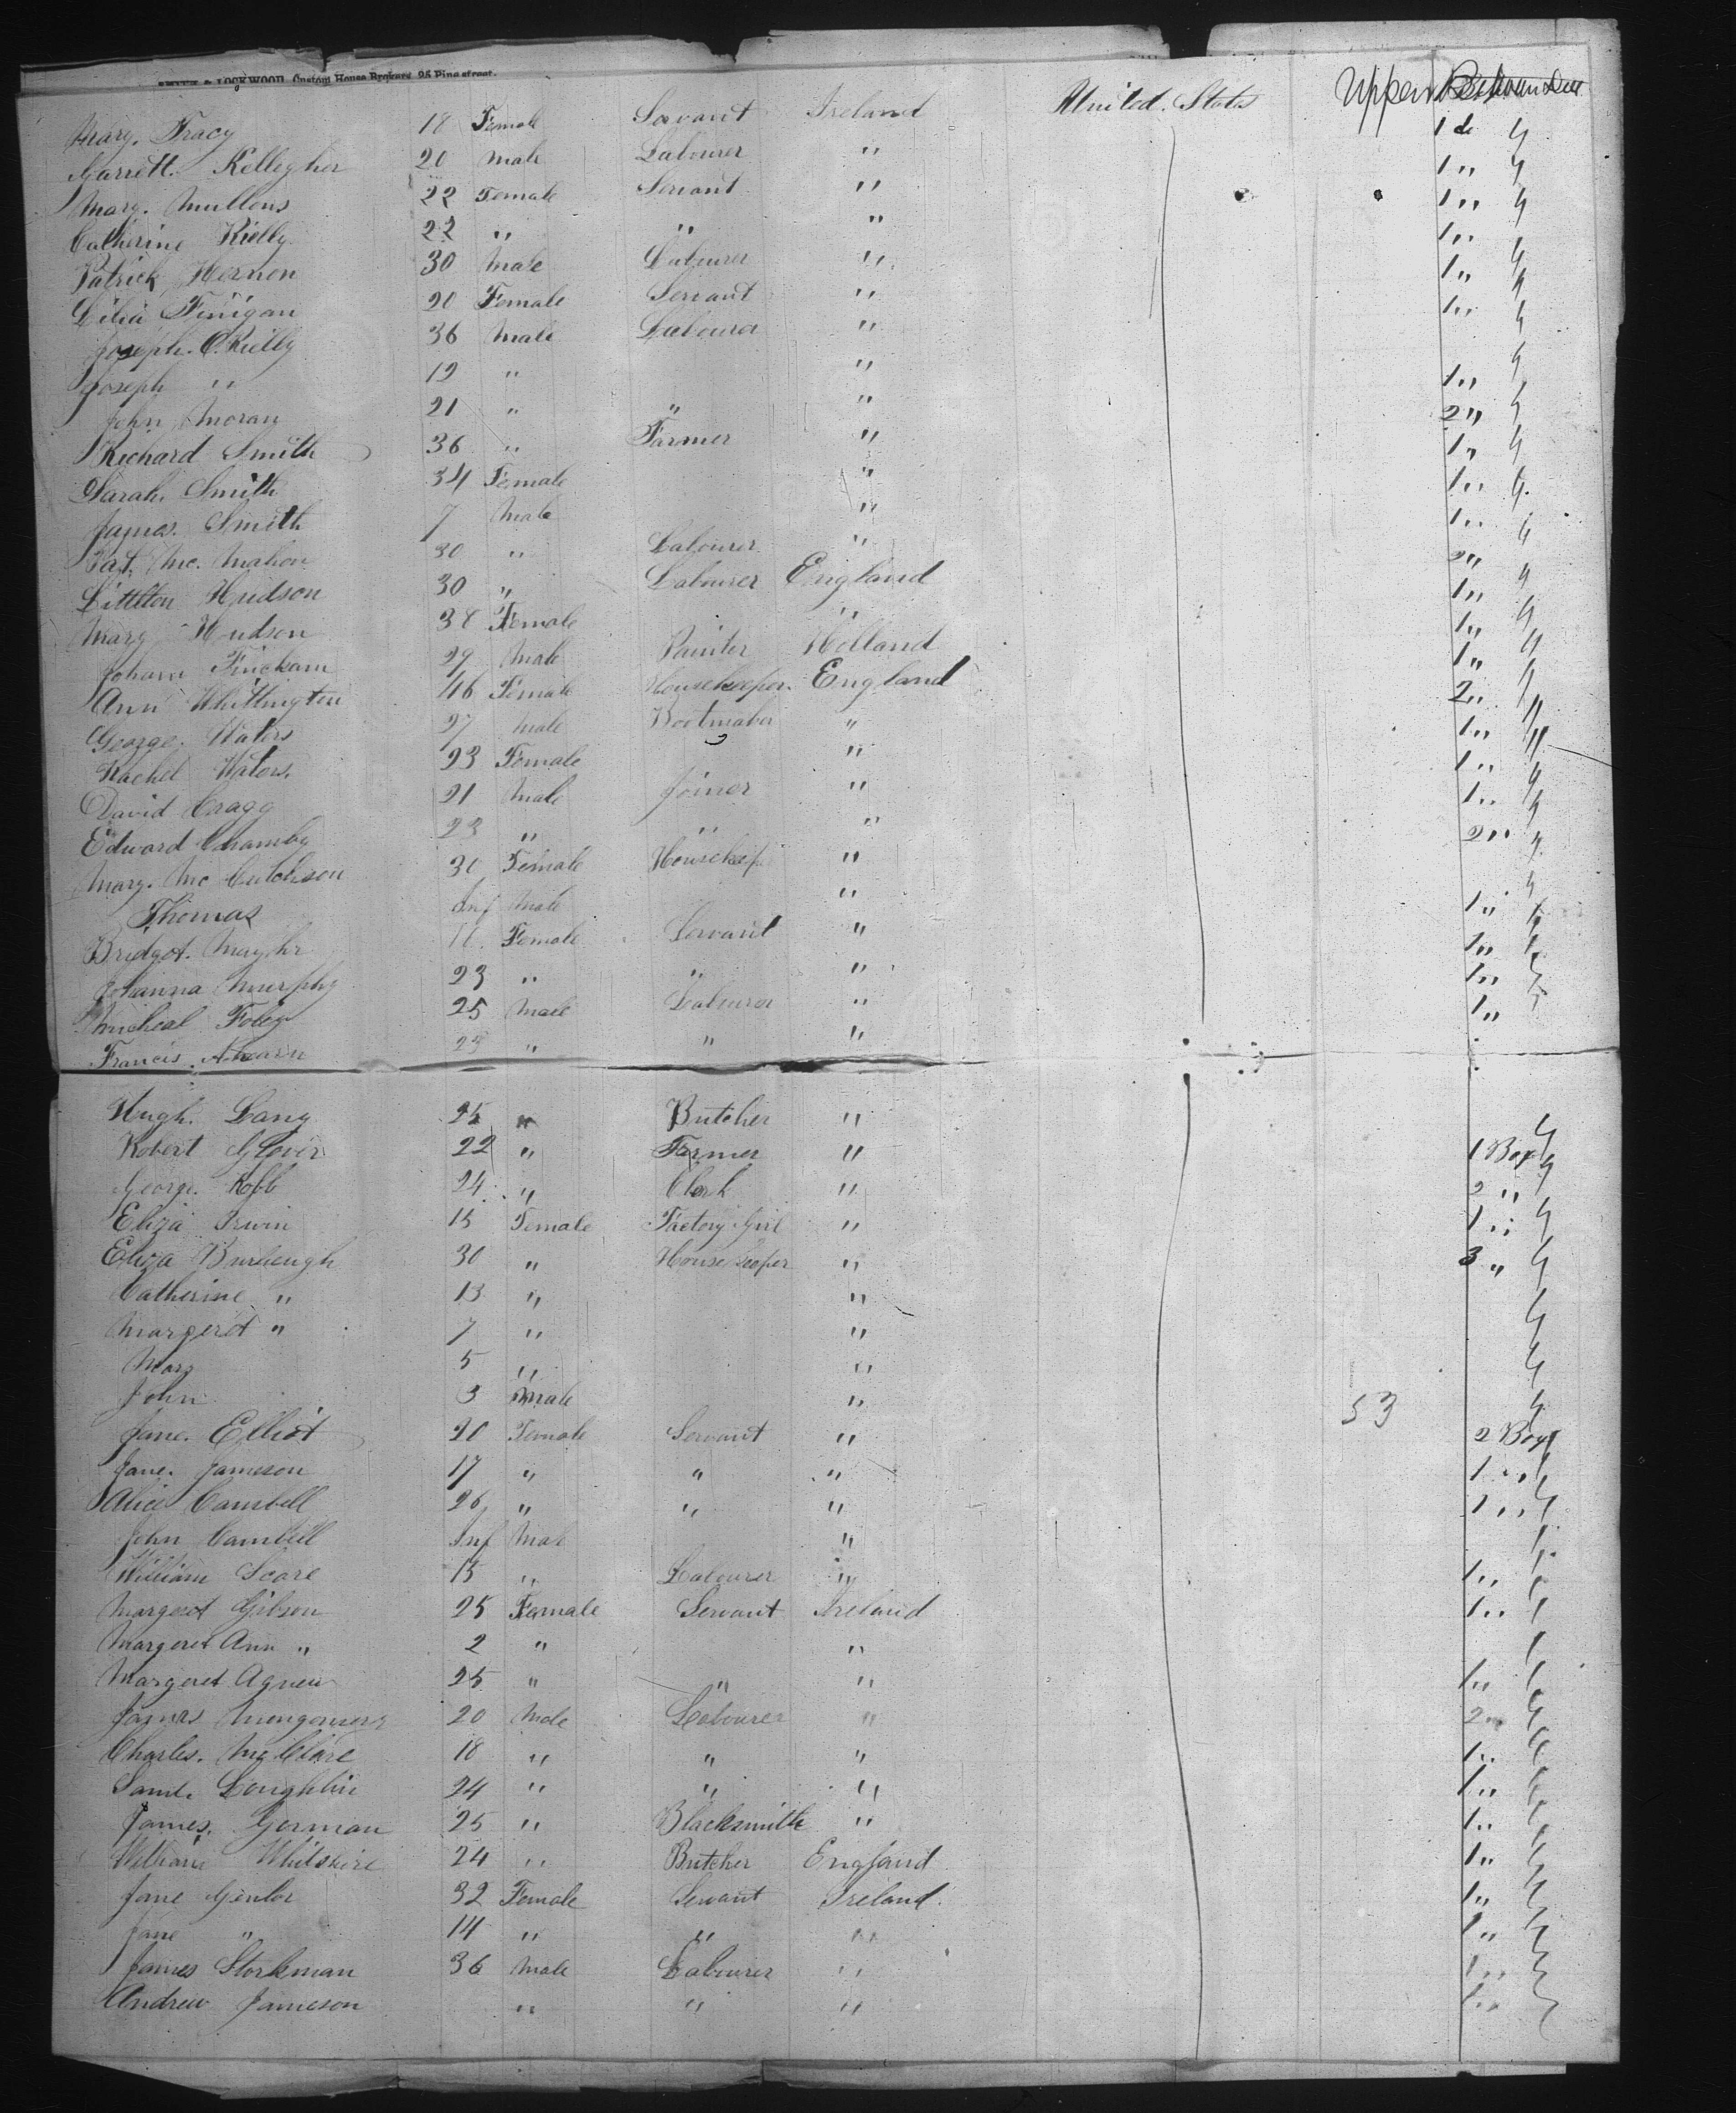 SMITH & LOCKWOOD, Custom House Brokers, 25 Pine street.
Mary. Tracy 18 Female Servant Ireland United. States Upper 1 do 4
Garrett. Kellegher 20 male Labourer " 1 " 4
Mary. Mullens 22 Female Servant " 1 " 4
Catherine Rielly 22 " " " 1 "
Patrick Hernon 30 Male Labourer " 1 " 4
Lilia Finigan 20 Female Servant " 1 " 4
Joseph. O.Rielly 36 Male Labourer " 4
Joseph " 19 " " 1 " 4
John Moran 21 " " " 2 " 4
Richard Smith 36 " Farmer " 1 " 4
Sarah. Smith 34 Female " 1 " 4
James. Smith 7 Male " 1 " 4
Pat. Mc. Mahon 30 " Labourer " 2 "
Littleton Hudson 30 " Labourer England 1 " 4
Mary Hudson 38 Female " 1 " 4
Johann 29 Male Painter Holland 1 " 4
Ann Whittington 46 Female Housekeeper. England 2 " 4
George. Waters 27 male Bootmaker " 1 "
Rachel Waters. 23 Female " 1 "
David Cragg 21 Male Joiner " 1 " 4
Edward 23 " " " 2 " 4
Mary. Mc Cutcheon 30 Female Housekep "
Thomas Inf Male " 1 "
Bridget. Female Servant " 1 "
Johanna Murphy 23 " " " 1 "
Micheal Foley 25 Male Labourer " 1 "
Francis. Ahearn 23 " " "
Hugh. Lang 25 " Butcher " 4
Robert Glover 22 " Farmer " 1 Box 4
George. Robb 24 " Clerk " 2 " 4
Eliza Irwin 15 Female Factory Girl " 1 " 4
Eliza 30 " House Keeper " 3 " 4
Catherine " 13 " " 4
Margeret " 7 " " 4
Mary 5 " " 4
John 3 Male " 53 4
Jane. Elliot 20 Female Servant " 2 Box
Jane. Jameson 17 " " " 1 " 4
Alice Cambell 26 " " " 1 " 4
John Cambell Inf Mal "
William Scare 15 " Labourer " 1 "
Margeret Gibson 25 Female Servant Ireland 1 "
Margeret Ann " 2 " "
Margeret Agnew 25 " " " 1 "
James 20 Male Labourer " 2 " 4
Charles. McClare 18 " " " 1 "
Saml. Loughlin 24 " " " 1 "
James. Gorman 25 " Blacksmith " 1 "
William Whilshire 24 " Butcher England 1 "
Jane 32 Female Servant Ireland. 1 "
Jane " 14 " " " 1 "
James Storkman 36 Male Labourer " 1 "
Andrew Jameson " " " 1 "